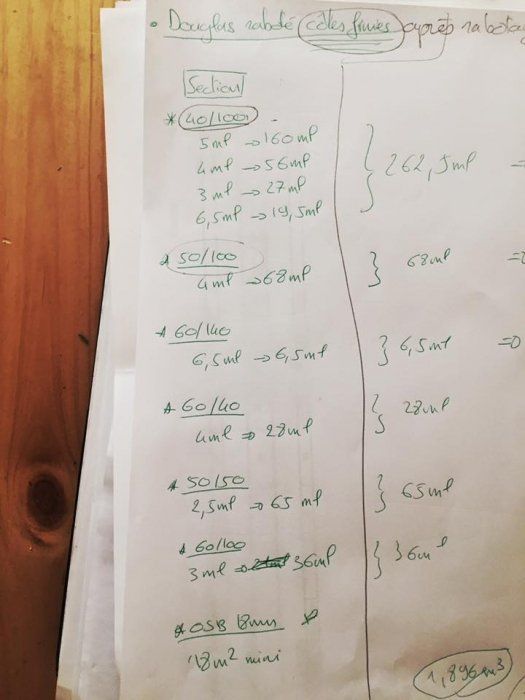 • Douglas raboté côtes finies après rabotag
Section
* 40/100
5ml → 160ml
4ml → 56ml
3ml → 27ml
6,5ml → 19,5ml
} 262,5ml →
* 50/100
4ml → 68ml } 68ml =>
* 60/140
6,5ml → 6,5ml } 6,5ml => 0
* 60/40
4ml => 28ml } 28ml
* 50/50
2,5ml => 65 ml } 65ml
* 60/100
3ml => 36ml } 36ml
* OSB 18mm *
18m² mini
1,896m3